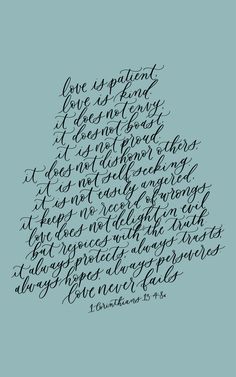 love is patient.
love is kind.
it does not envy.
it does not boast
it is not proud.
it does not dishonor others.
it is not self seeking
it is not easily angered.
it keeps no record of wrongs.
love does not delight in evil
but rejoices with the truth
it always protects always trusts
always hopes. always perseveres.
love never fails
1 Corinthians 13 4-8a